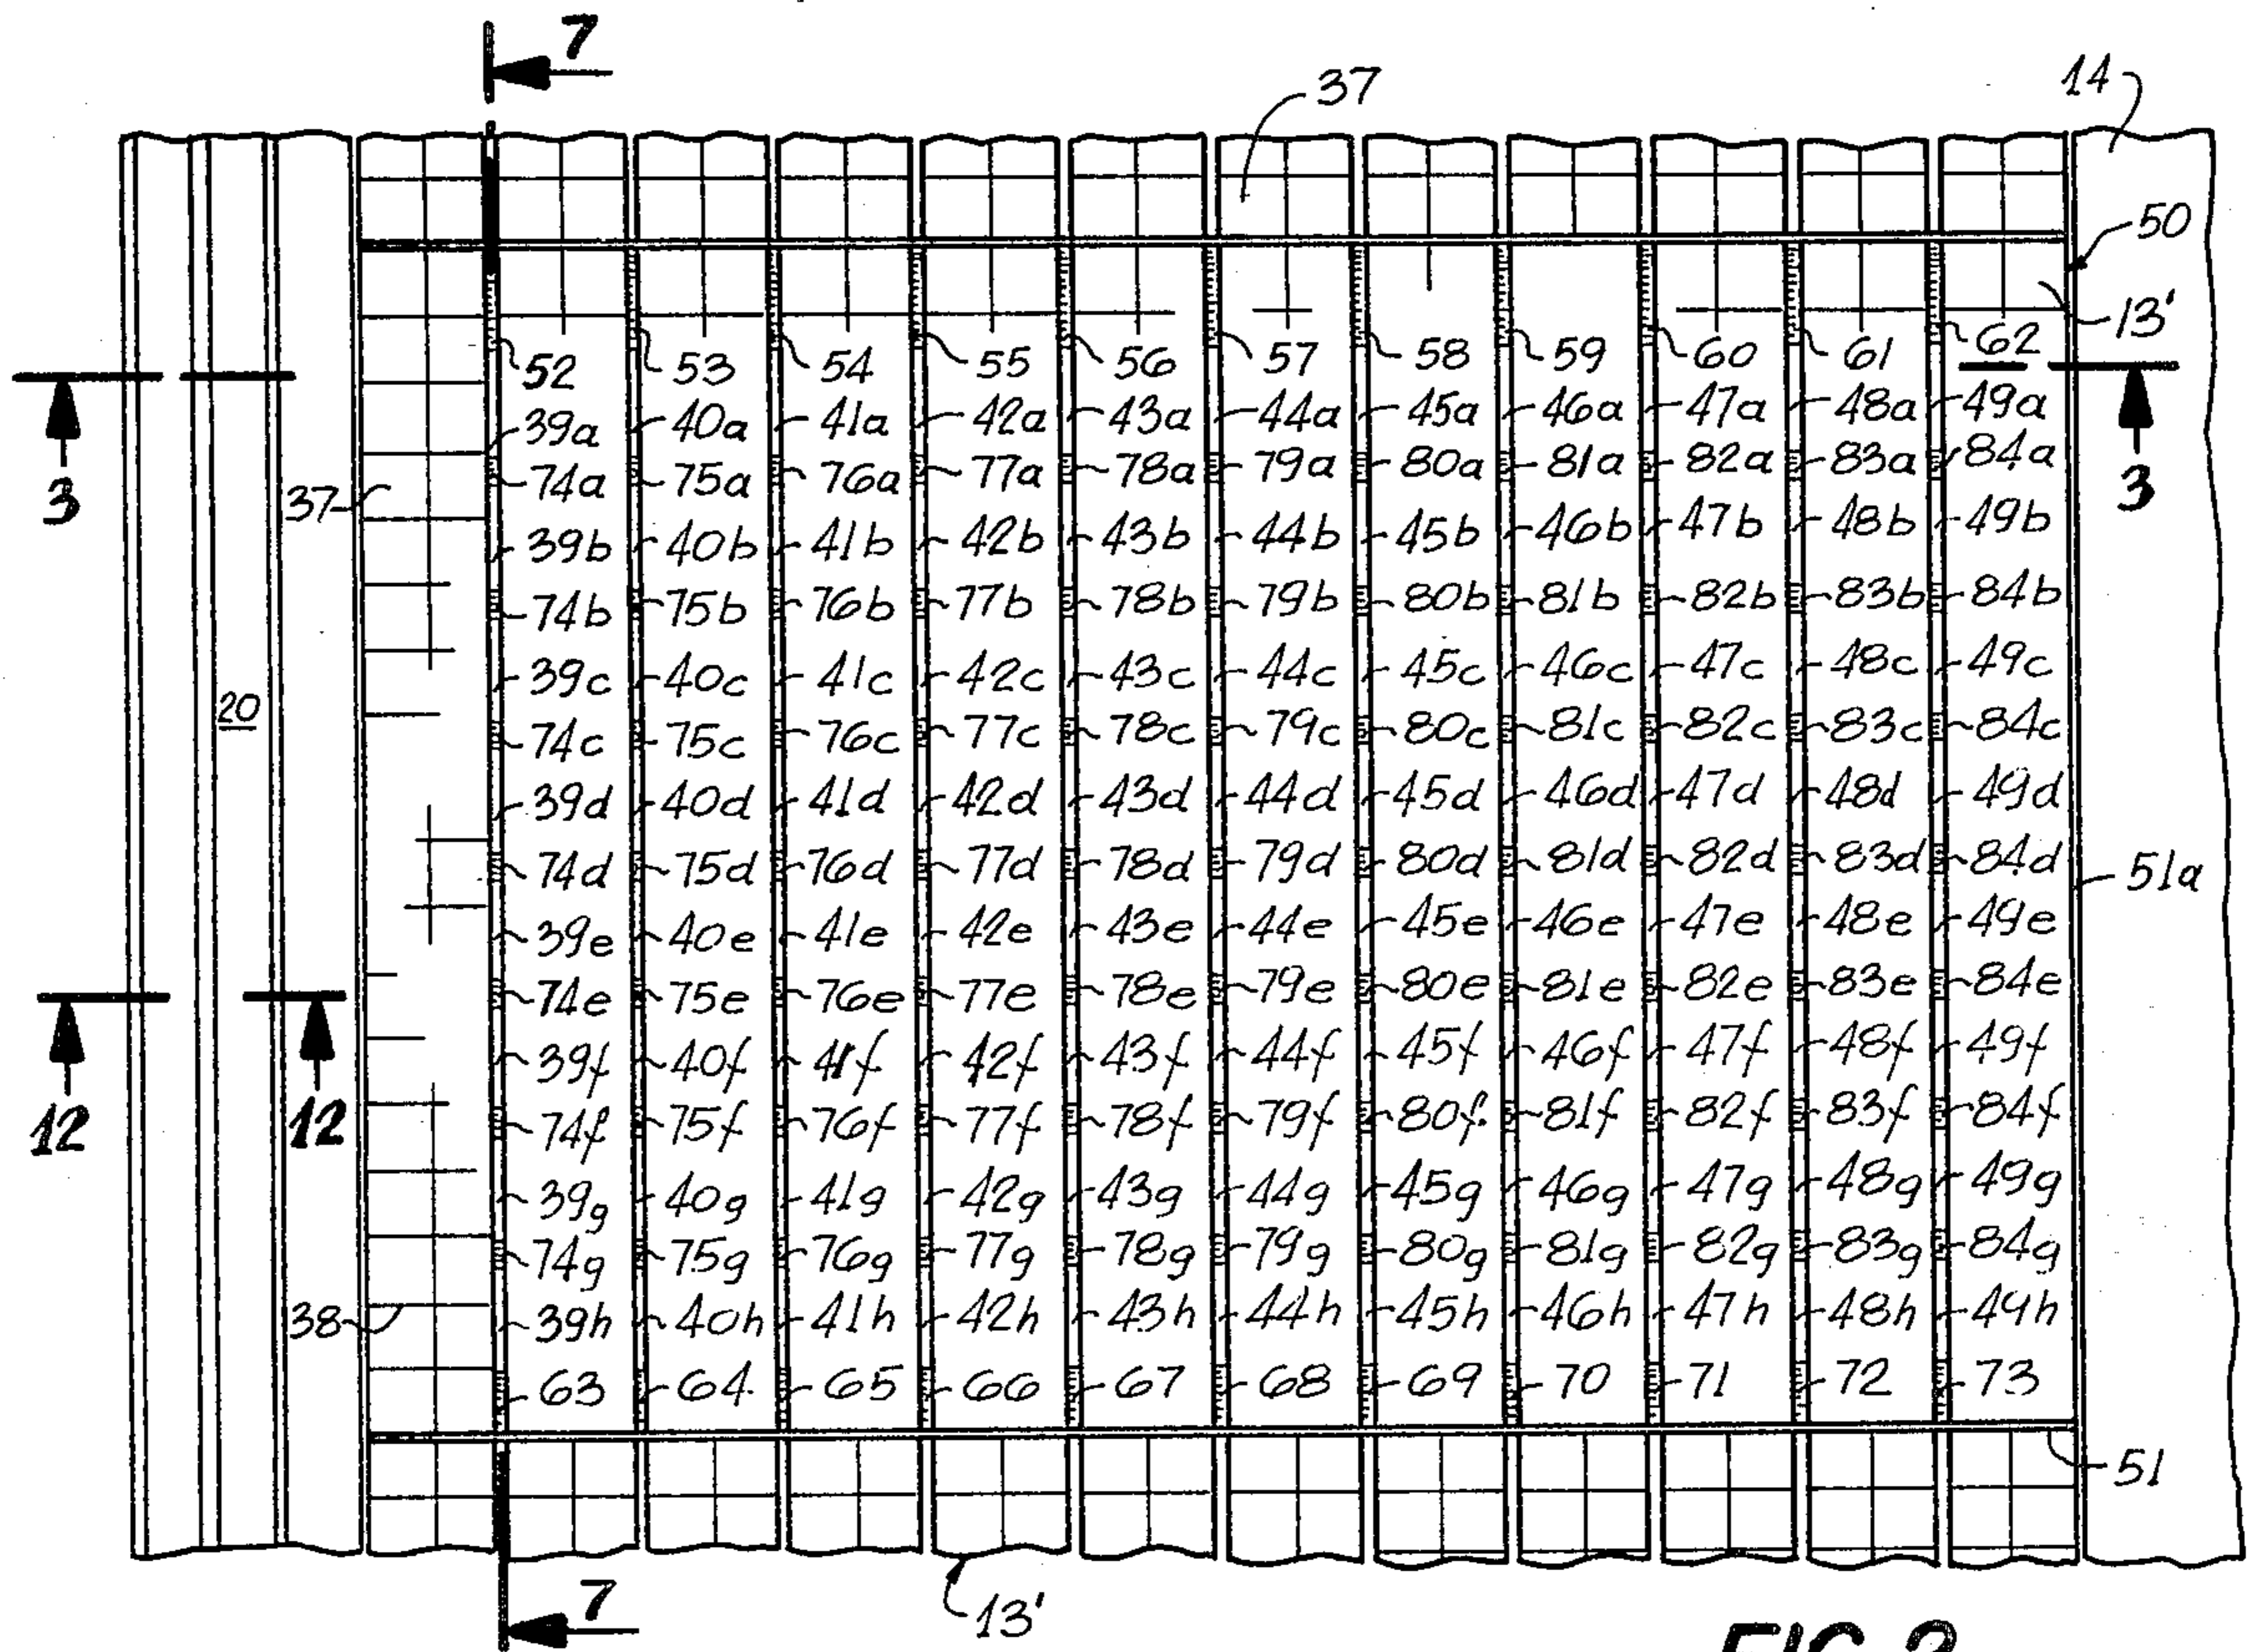 7
37
14
50
13'
52 53 54 55 56 57 58 59 60 61 62
3 3
39a 40a 41a 42a 43a 44a 45a 46a 47a 48a 49a
74a 75a 76a 77a 78a 79a 80a 81a 82a 83a 84a
37
39b 40b 41b 42b 43b 44b 45b 46b 47b 48b 49b
74b 75b 76b 77b 78b 79b 80b 81b 82b 83b 84b
39c 40c 41c 42c 43c 44c 45c 46c 47c 48c 49c
20
74c 75c 76c 77c 78c 79c 80c 81c 82c 83c 84c
39d 40d 41d 42d 43d 44d 45d 46d 47d 48d 49d
74d 75d 76d 77d 78d 79d 80d 81d 82d 83d 84d
51a
39e 40e 41e 42e 43e 44e 45e 46e 47e 48e 49e
74e 75e 76e 77e 78e 79e 80e 81e 82e 83e 84e
39f 40f 41f 42f 43f 44f 45f 46f 47f 48f 49f
12 12
74f 75f 76f 77f 78f 79f 80f 81f 82f 83f 84f
39g 40g 41g 42g 43g 44g 45g 46g 47g 48g 49g
74g 75g 76g 77g 78g 79g 80g 81g 82g 83g 84g
38
39h 40h 41h 42h 43h 44h 45h 46h 47h 48h 49h
63 64 65 66 67 68 69 70 71 72 73
51
7
13'